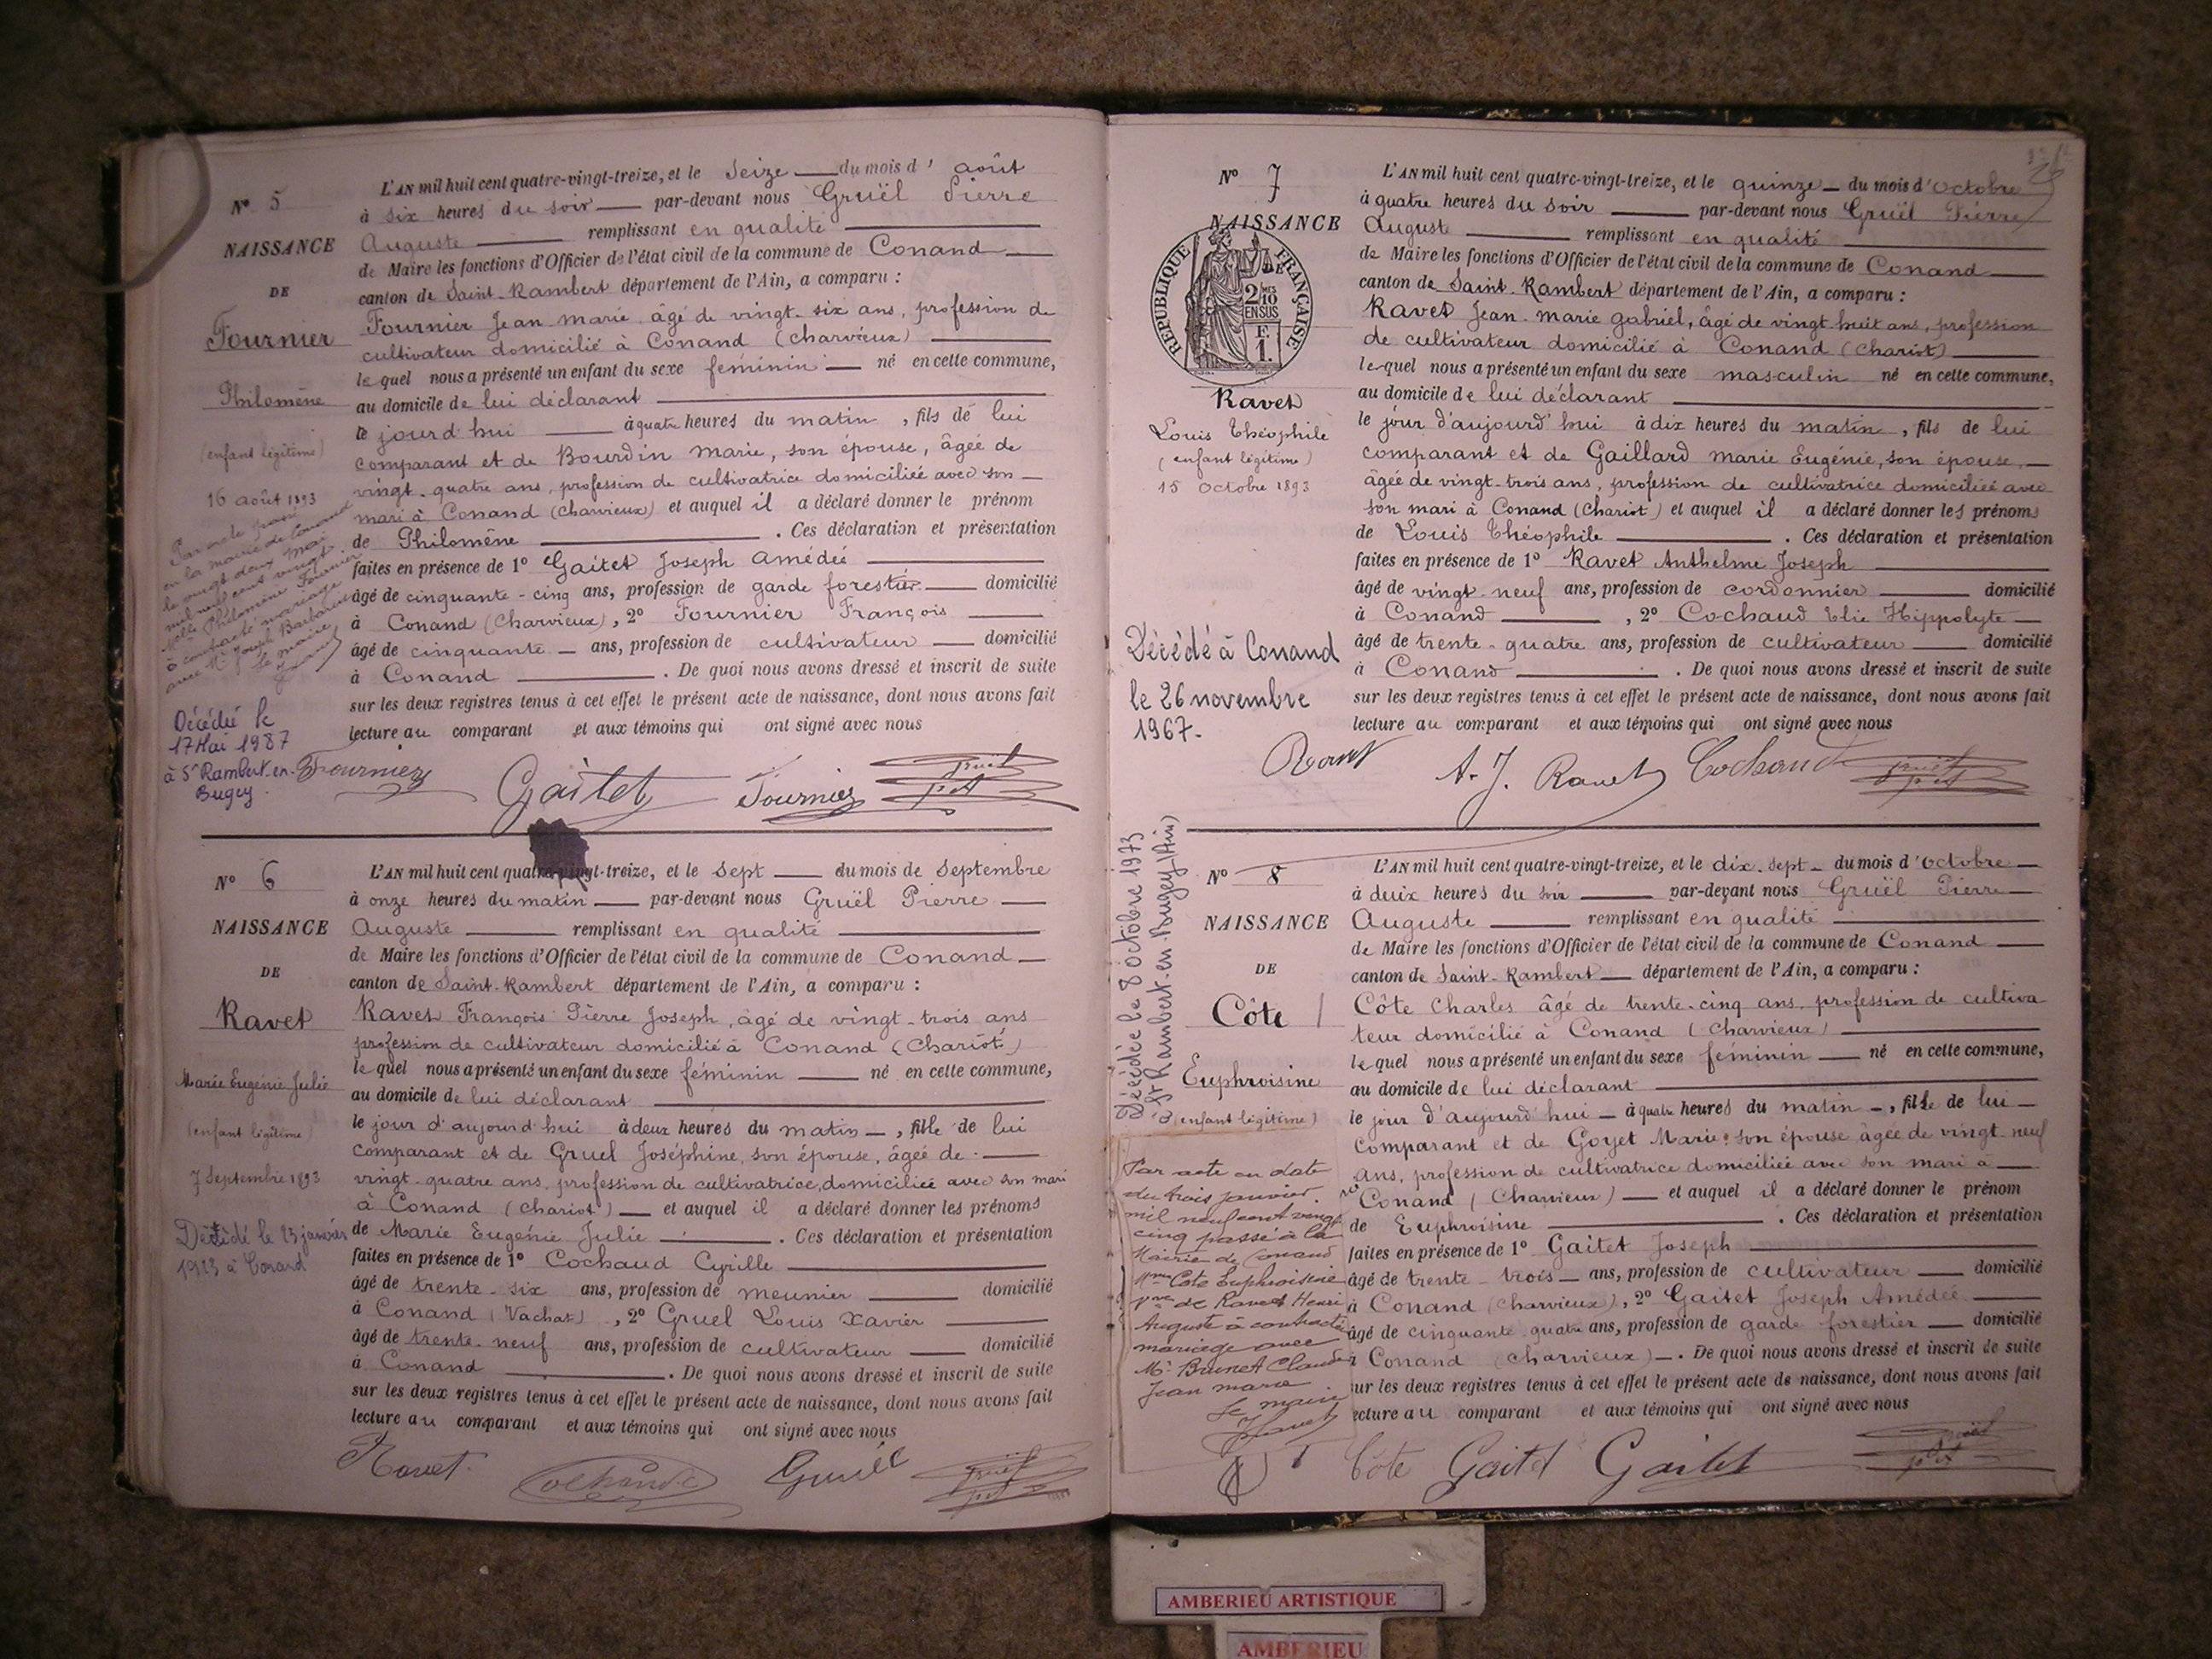 N° 5
NAISSANCE
DE
Fournier
Philomène
(enfant légitime)
16 août 1893
Par acte passé
en la mairie de Conand
le vingt deux mai
mil neuf cent vingt
Melle Philomène Fournier
a contracté mariage
avec Mr Joseph Barbarin
Le maire
Décédée le
17 Mai 1987
à St Rambert-en-
Bugey.
L'AN mil huit cent quatre-vingt-treize, et le Seize du mois d'août
à six heures du soir par-devant nous Gruël Pierre
Auguste remplissant en qualité
de Maire les fonctions d'Officier de l'état civil de la commune de Conand
canton de Saint-Rambert département de l'Ain, a comparu :
Fournier Jean marie âgé de vingt-six ans, profession de
cultivateur domicilié à Conand (charvieux)
lequel nous a présenté un enfant du sexe féminin né en cette commune,
au domicile de lui déclarant
le jourd'hui à quatre heures du matin, fils de lui
comparant et de Bourdin marie, son épouse, âgée de
vingt-quatre ans, profession de cultivatrice domiciliée avec son
mari à Conand (charvieux) et auquel il a déclaré donner le prénom
de Philomène . Ces déclaration et présentation
faites en présence de 1° Gaitet Joseph Amédée
âgé de cinquante-cinq ans, profession de garde forestier domicilié
à Conand (Charvieux), 2° Fournier François
âgé de cinquante ans, profession de cultivateur domicilié
à Conand . De quoi nous avons dressé et inscrit de suite
sur les deux registres tenus à cet effet le présent acte de naissance, dont nous avons fait
lecture au comparant et aux témoins qui ont signé avec nous
Fournier Gaitet Fournier Gruël
N° 6
NAISSANCE
DE
Ravet
Marie Eugénie Julie
(enfant légitime)
7 Septembre 1893
Décédé le 23 janvier
1923 à Conand
L'AN mil huit cent quatre-vingt-treize, et le sept du mois de Septembre
à onze heures du matin par-devant nous Gruël Pierre
Auguste remplissant en qualité
de Maire les fonctions d'Officier de l'état civil de la commune de Conand
canton de Saint-Rambert département de l'Ain, a comparu :
Ravet François Pierre Joseph, âgé de vingt-trois ans
profession de cultivateur domicilié à Conand (Chariot)
lequel nous a présenté un enfant du sexe féminin né en cette commune,
au domicile de lui déclarant
le jour d'aujourd'hui à deux heures du matin, fille de lui
comparant et de Gruel Joséphine, son épouse, âgée de
vingt-quatre ans, profession de cultivatrice, domiciliée avec son mari
à Conand (chariot) et auquel il a déclaré donner les prénoms
de Marie Eugénie Julie . Ces déclaration et présentation
faites en présence de 1° Cochaud Cyrille
âgé de trente-six ans, profession de meunier domicilié
à Conand (Vachat), 2° Gruel Louis Xavier
âgé de trente-neuf ans, profession de cultivateur domicilié
à Conand . De quoi nous avons dressé et inscrit de suite
sur les deux registres tenus à cet effet le présent acte de naissance, dont nous avons fait
lecture au comparant et aux témoins qui ont signé avec nous
Ravet Cochaud C Gruël Gruël
N° 7
NAISSANCE
DE
RÉPUBLIQUE FRANÇAISE
2/10 MES
EN SUS
F.
1.
Ravet
Louis Théophile
(enfant légitime)
15 Octobre 1893
Décédé à Conand
le 26 novembre
1967.
L'AN mil huit cent quatre-vingt-treize, et le quinze du mois d'Octobre
à quatre heures du soir par-devant nous Gruël Pierre
Auguste remplissant en qualité
de Maire les fonctions d'Officier de l'état civil de la commune de Conand
canton de Saint-Rambert département de l'Ain, a comparu :
Ravet Jean-marie gabriel, âgé de vingt-huit ans, profession
de cultivateur domicilié à Conand (chariot)
lequel nous a présenté un enfant du sexe masculin né en cette commune,
au domicile de lui déclarant
le jour d'aujourd'hui à dix heures du matin, fils de lui
comparant et de Gaillard marie Eugénie, son épouse,
âgée de vingt-trois ans, profession de cultivatrice domiciliée avec
son mari à Conand (Chariot) et auquel il a déclaré donner les prénoms
de Louis Théophile . Ces déclaration et présentation
faites en présence de 1° Ravet Anthelme Joseph
âgé de vingt-neuf ans, profession de cordonnier domicilié
à Conand , 2° Cochaud Elie Hippolyte
âgé de trente-quatre ans, profession de cultivateur domicilié
à Conand . De quoi nous avons dressé et inscrit de suite
sur les deux registres tenus à cet effet le présent acte de naissance, dont nous avons fait
lecture au comparant et aux témoins qui ont signé avec nous
Ravet A. J. Ravet Cochaud Gruël
N° 8
NAISSANCE
DE
Côte
Euphroisine
(enfant légitime)
Décédée le 8 octobre 1973
à St Rambert-en-Bugey (Ain)
Par acte en date
du trois janvier
mil neuf cent vingt
cinq passé à la
Mairie de Conand
Mme Cote Euphroisine
Vve de Ravet Henri
Auguste à contracté
mariage avec
Mr Brunet Claude
Jean marie
Le maire
L'AN mil huit cent quatre-vingt-treize, et le dix-sept du mois d'Octobre
à deux heures du soir par-devant nous Gruël Pierre
Auguste remplissant en qualité
de Maire les fonctions d'Officier de l'état civil de la commune de Conand
canton de Saint-Rambert département de l'Ain, a comparu :
Côte Charles âgé de trente-cinq ans, profession de cultiva
teur domicilié à Conand (Charvieux)
lequel nous a présenté un enfant du sexe féminin né en cette commune,
au domicile de lui déclarant
le jour d'aujourd'hui à quatre heures du matin, fille de lui
comparant et de Goyet Marie, son épouse âgée de vingt-neuf
ans, profession de cultivatrice domiciliée avec son mari à
Conand (Charvieux) et auquel il a déclaré donner le prénom
de Euphroisine . Ces déclaration et présentation
faites en présence de 1° Gaitet Joseph
âgé de trente-trois ans, profession de cultivateur domicilié
à Conand (charvieux), 2° Gaitet Joseph Amédée
âgé de cinquante quatre ans, profession de garde forestier domicilié
à Conand (charvieux) . De quoi nous avons dressé et inscrit de suite
sur les deux registres tenus à cet effet le présent acte de naissance, dont nous avons fait
lecture au comparant et aux témoins qui ont signé avec nous
Côte Gaitet Gaitet Gruël
AMBERIEU ARTISTIQUE
AMBERIEU